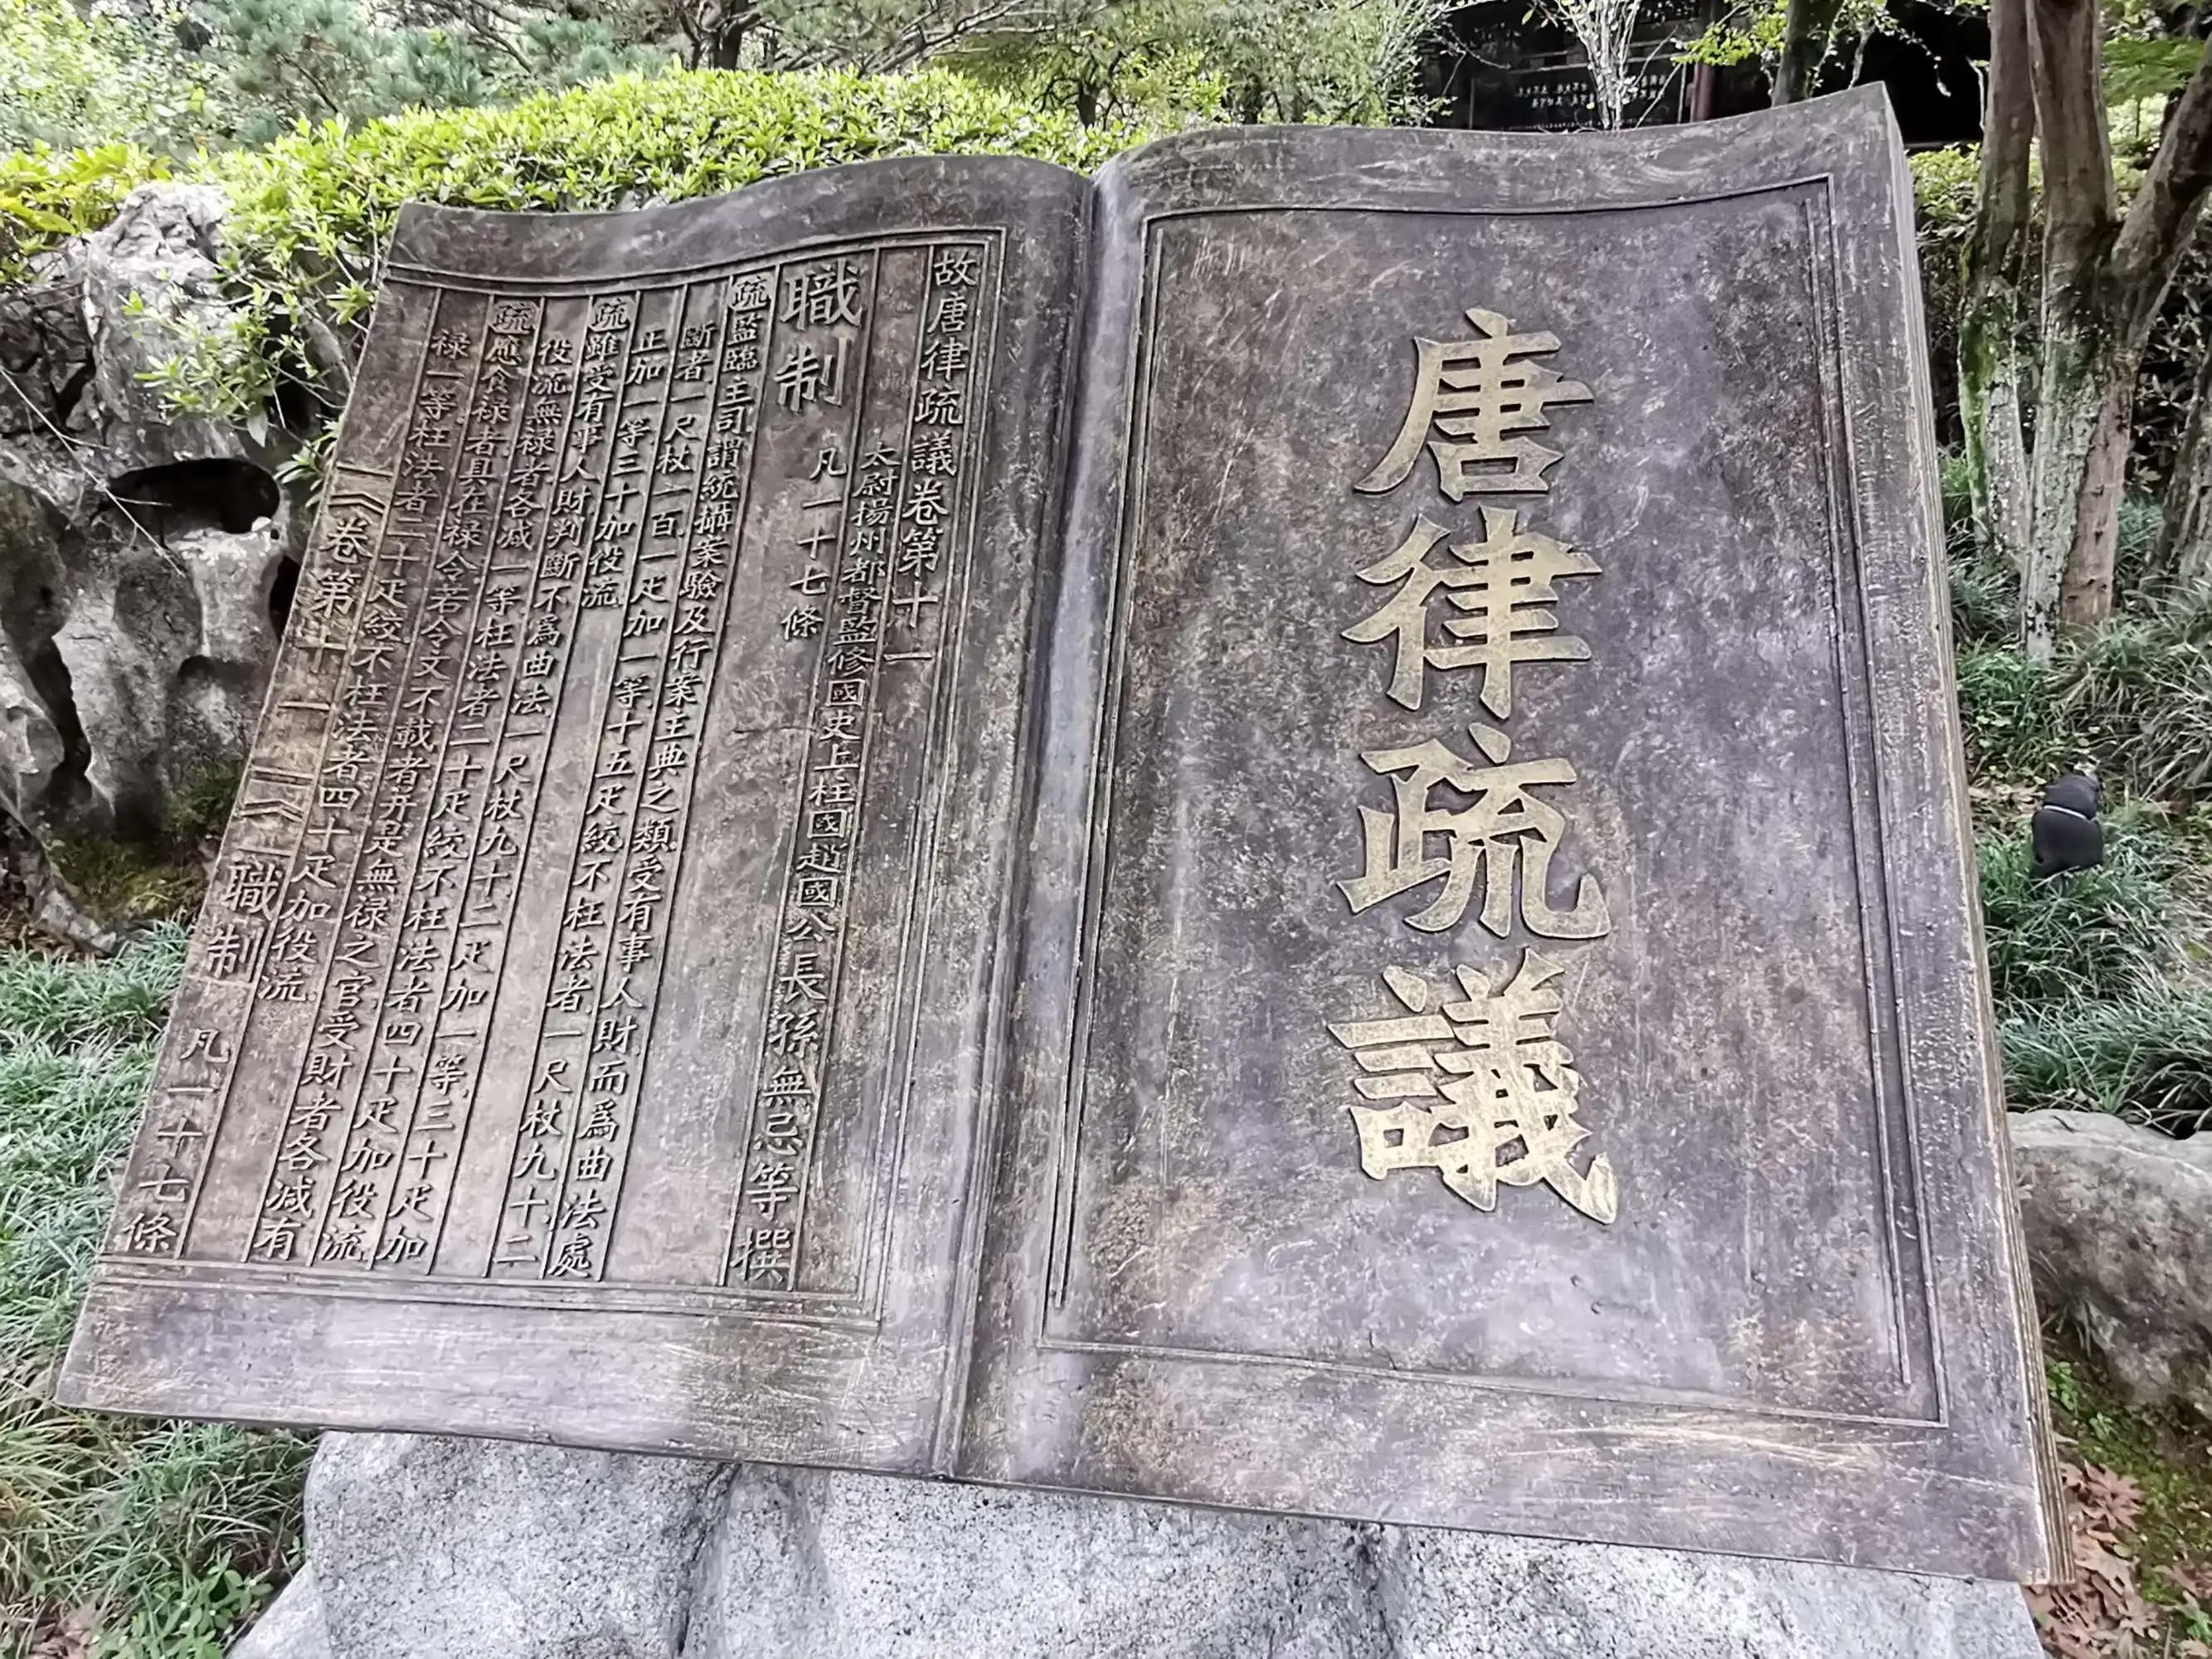 唐律疏議
故唐律疏議卷第十一
太尉揚州都督監修國史上柱國趙國公長孫無忌等撰
職制 凡一十七條
疏監臨主司謂統攝案驗及行案主典之類受有事人財而爲曲法處
斷者一尺杖一百一疋加一等十五疋絞不枉法者一尺杖九十二
疋加一等三十加役流
疏雖受有事人財判斷不爲曲法一尺杖九十二疋加一等三十疋加
役流無禄者各减一等枉法者二十疋絞不枉法者四十疋加役流
疏應食禄者具在禄令若令文不載者并是無禄之官受財者各减有
禄一等枉法者二十疋絞不枉法者四十疋加役流
卷第十一 職制 凡一十七條